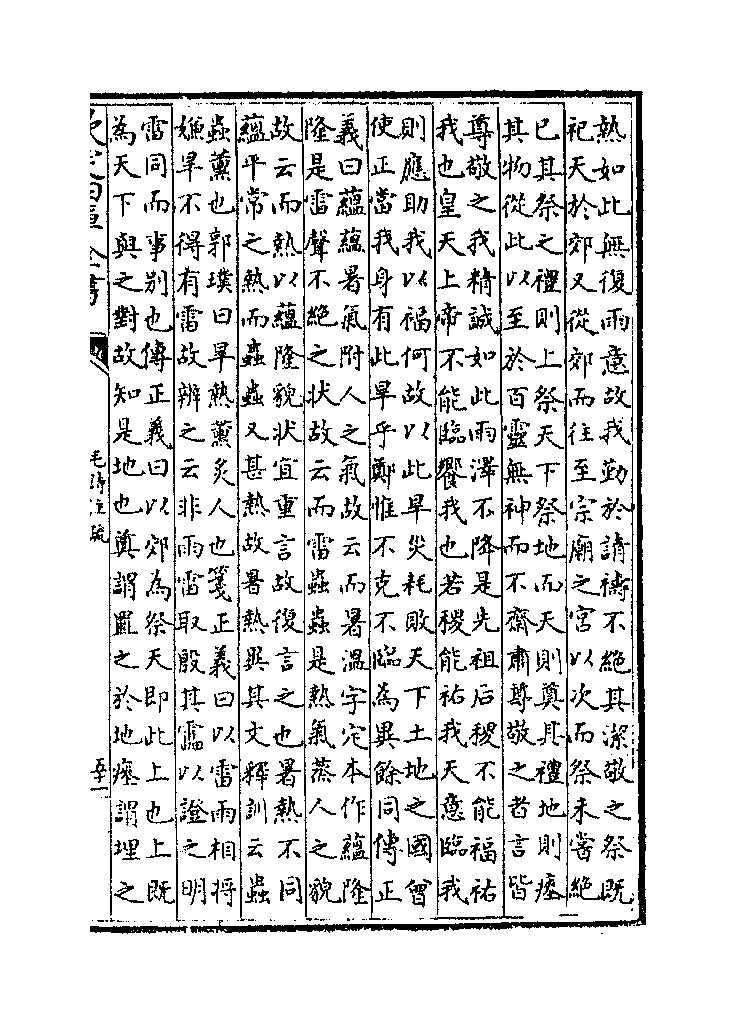 熱如此無復雨意故我勤於請禱不絶其潔敬之祭既
祀天於郊又從郊而往至宗廟之宫以次而祭未嘗絶
已其祭之禮則上祭天下祭地而天則奠其禮地則瘞
其物從此以至於百靈無神而不齋肅尊敬之者言皆
尊敬之我精誠如此雨澤不降是先祖后稷不能福祐
我也皇天上帝不能臨饗我也若稷能祐我天意臨我
則應助我以福何故以此旱災耗敗天下土地之國曾
使正當我身有此旱乎鄭惟不克不臨為異餘同傳正
義曰藴藴暑氣附人之氣故云而暑温字定本作藴隆
隆是雷聲不絶之状故云而雷蟲蟲是熱氣蒸人之貌
故云而熱以藴隆貌状宜重言故復言之也暑熱不同
蘊平常之熱而蟲蟲又甚熱故暑熱異其文釋訓云蟲
蟲薫也郭璞曰旱熱薫炙人也箋正義曰以雷雨相将
嫌旱不得有雷故辨之云非雨雷取殷其靁以證之明
雷同而事别也傳正義曰以郊為祭天即此上也上既
為天下與之對故知是地也奠謂置之於地瘞謂埋之
欽定四庫全書
毛詩注疏
五十一